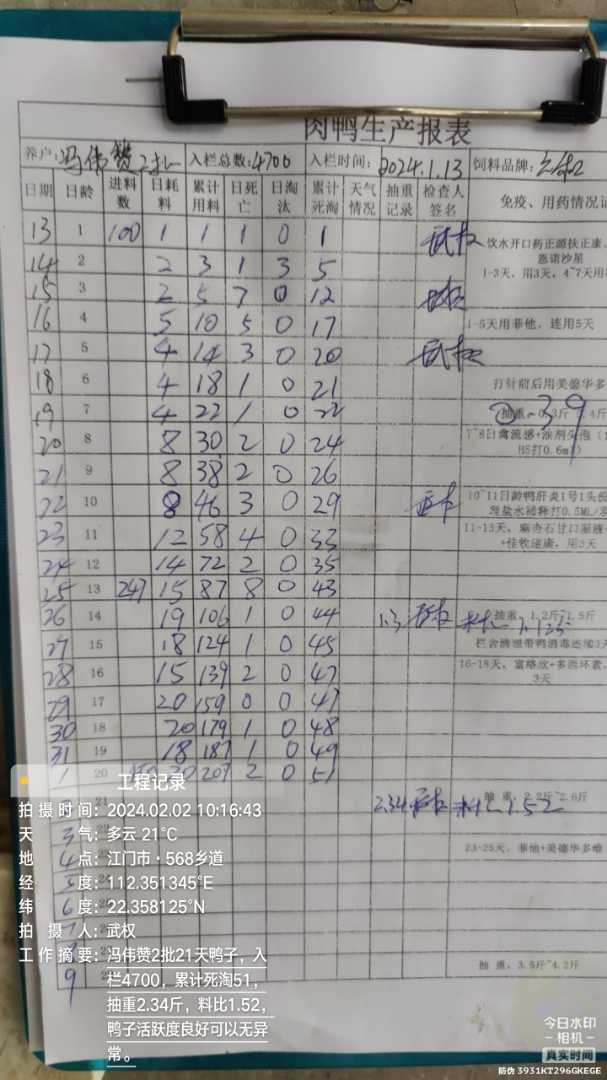 肉鸭生产报表
养户: 冯伟赞2批 入栏总数: 4700 入栏时间: 2024.1.13 饲料品牌:
日期 日龄 进料数 日耗料 累计用料 日死亡 日淘汰 累计死淘 天气情况 抽重记录 检查人签名 免疫、用药情况记
13 1 100 1 1 1 0 1 武权 饮水开口药正源扶正康、
恩诺沙星
14 2 2 3 1 3 5 1-3天, 用3天, 4~7天用
15 3 2 5 7 0 12 武权
16 4 5 10 5 0 17 1-5天用菲他, 连用5天
17 5 4 14 3 0 20 武权
18 6 4 18 1 0 21 打针前后用美德华多
19 7 4 22 1 0 22 抽重
20 8 8 30 2 0 24 7~8日禽流感+油剂
H5打0.6m
21 9 8 38 2 0 26
22 10 8 46 3 0 29 10~11日龄鸭肝炎1号1头份
23 11 12 58 4 0 33 11-13天,
24 12 14 72 2 0 35 用3天
25 13 247 15 87 8 0 43
26 14 19 106 1 0 44 1.3 武权 抽重, 1.2斤~1.5斤
27 15 18 124 1 0 45 栏舍清理带鸭消毒连续3天
28 16 15 139 2 0 47 16-18天, 富络欣+多西环素,
3天
29 17 20 159 0 0 47
30 18 20 179 1 0 48
31 19 18 187 1 0 49
1 20 20 207 2 0 51
21 2.34 武权 料比 1.52 抽 重, 2.2斤~2.6斤
3
4 23-25天, 菲他+美德华多维
5
6
7
9 抽 重, 3.5斤~4.2斤
工程记录
拍摄时间: 2024.02.02 10:16:43
天 气: 多云 21°C
地 点: 江门市·568乡道
经 度: 112.351345°E
纬 度: 22.358125°N
拍 摄 人: 武权
工作摘要: 冯伟赞2批21天鸭子, 入
栏4700, 累计死淘51,
抽重2.34斤, 料比1.52,
鸭子活跃度良好可以无异
常。
今日水印
-相机-
真实时间
防伪 3931KT296GKEGE